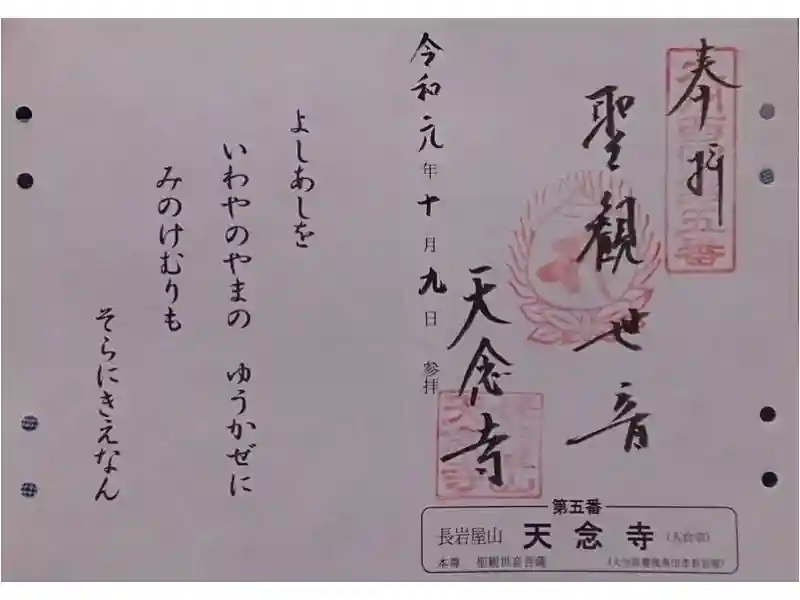 奉拝
聖観世音
天念寺
令和元年十月九日 参拝
よしあしを
いわやのやまの ゆうかぜに
みのけむりも
そらにきえなん
第五番
長岩屋山 天念寺 (天台宗)
本尊 聖観世音菩薩